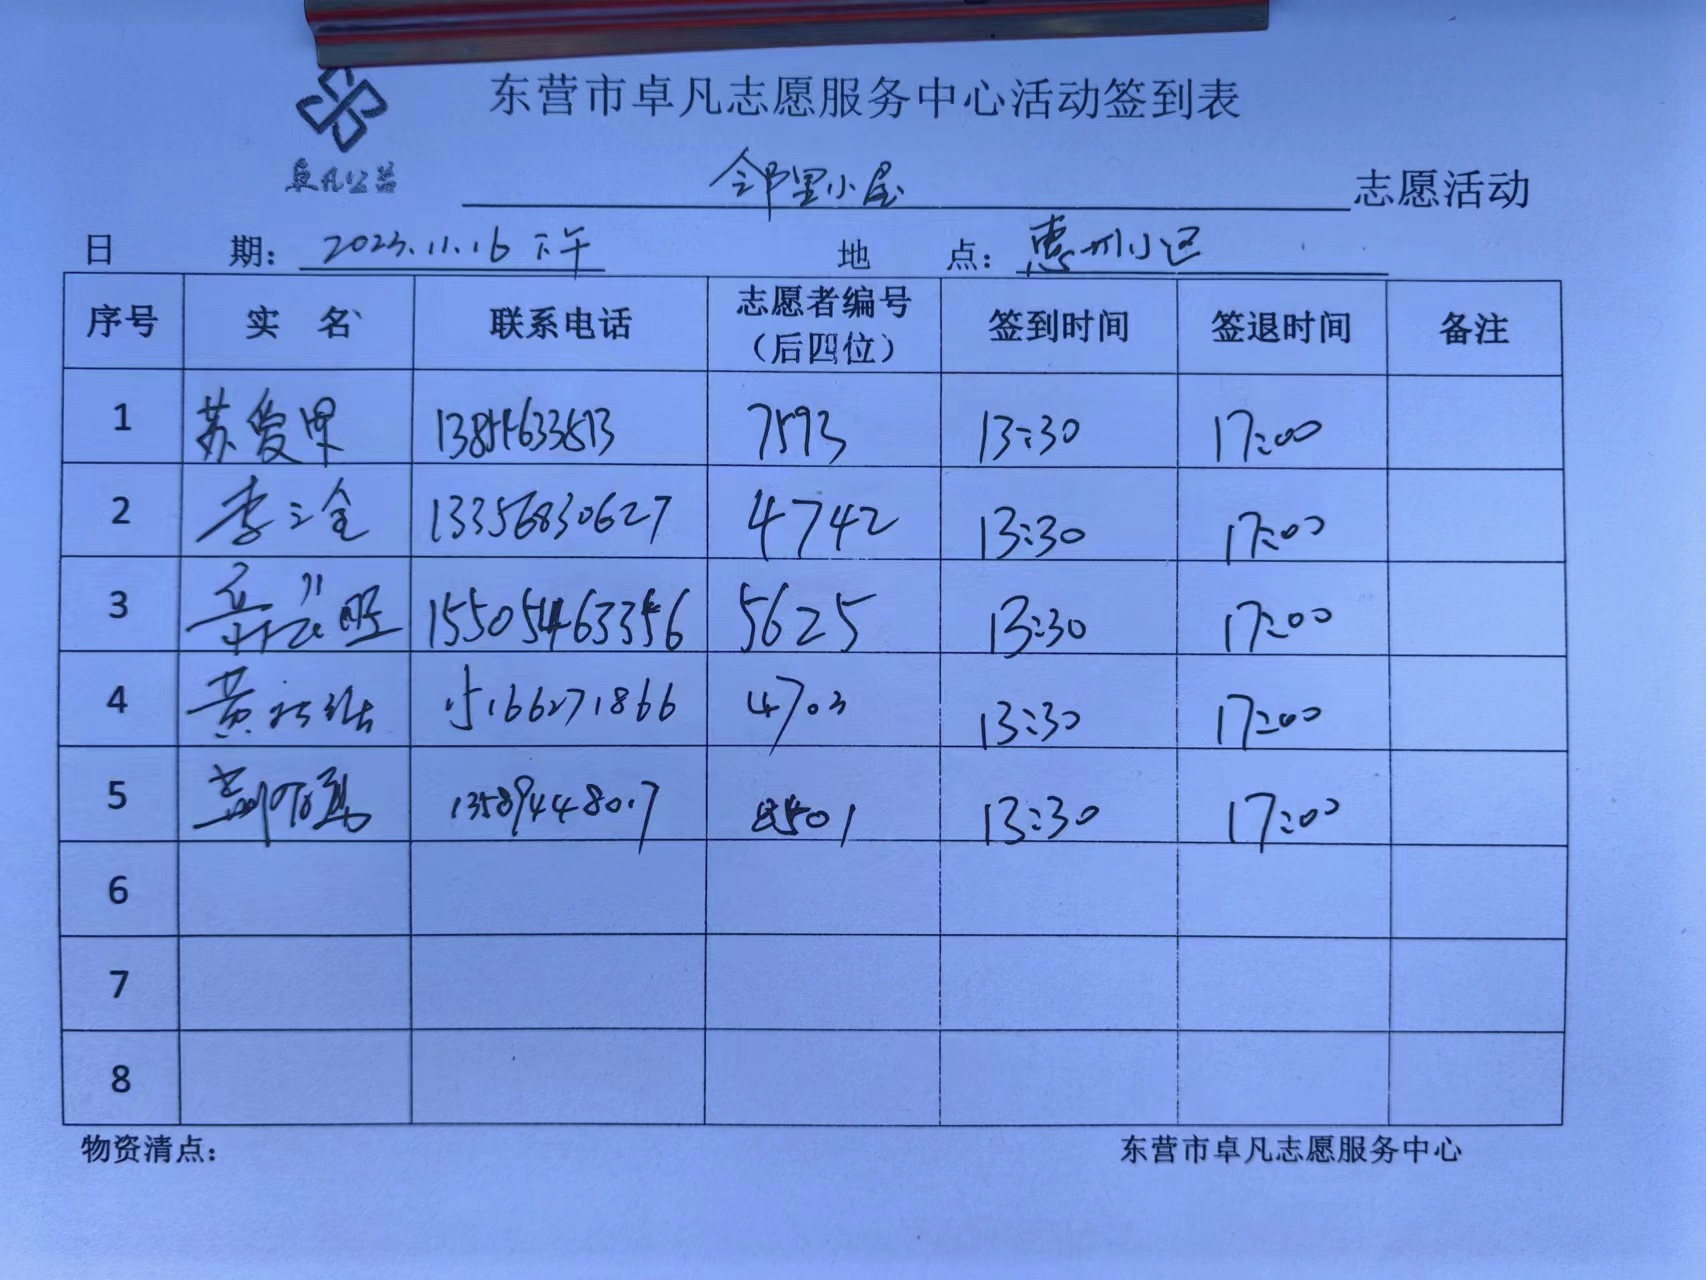 东营市卓凡志愿服务中心活动签到表
卓凡公益
邻里小屋 志愿活动
日 期: 2023.11.16 下午 地 点: 惠州小区
序号 实 名 联系电话 志愿者编号（后四位） 签到时间 签退时间 备注
1 苏爱果 13854633573 7593 13:30 17:00
2 李三全 13356830627 4742 13:30 17:00
3 15505463356 5625 13:30 17:00
4 黄 15166271866 4703 13:30 17:00
5 13589448017 13:30 17:00
6
7
8
物资清点: 东营市卓凡志愿服务中心